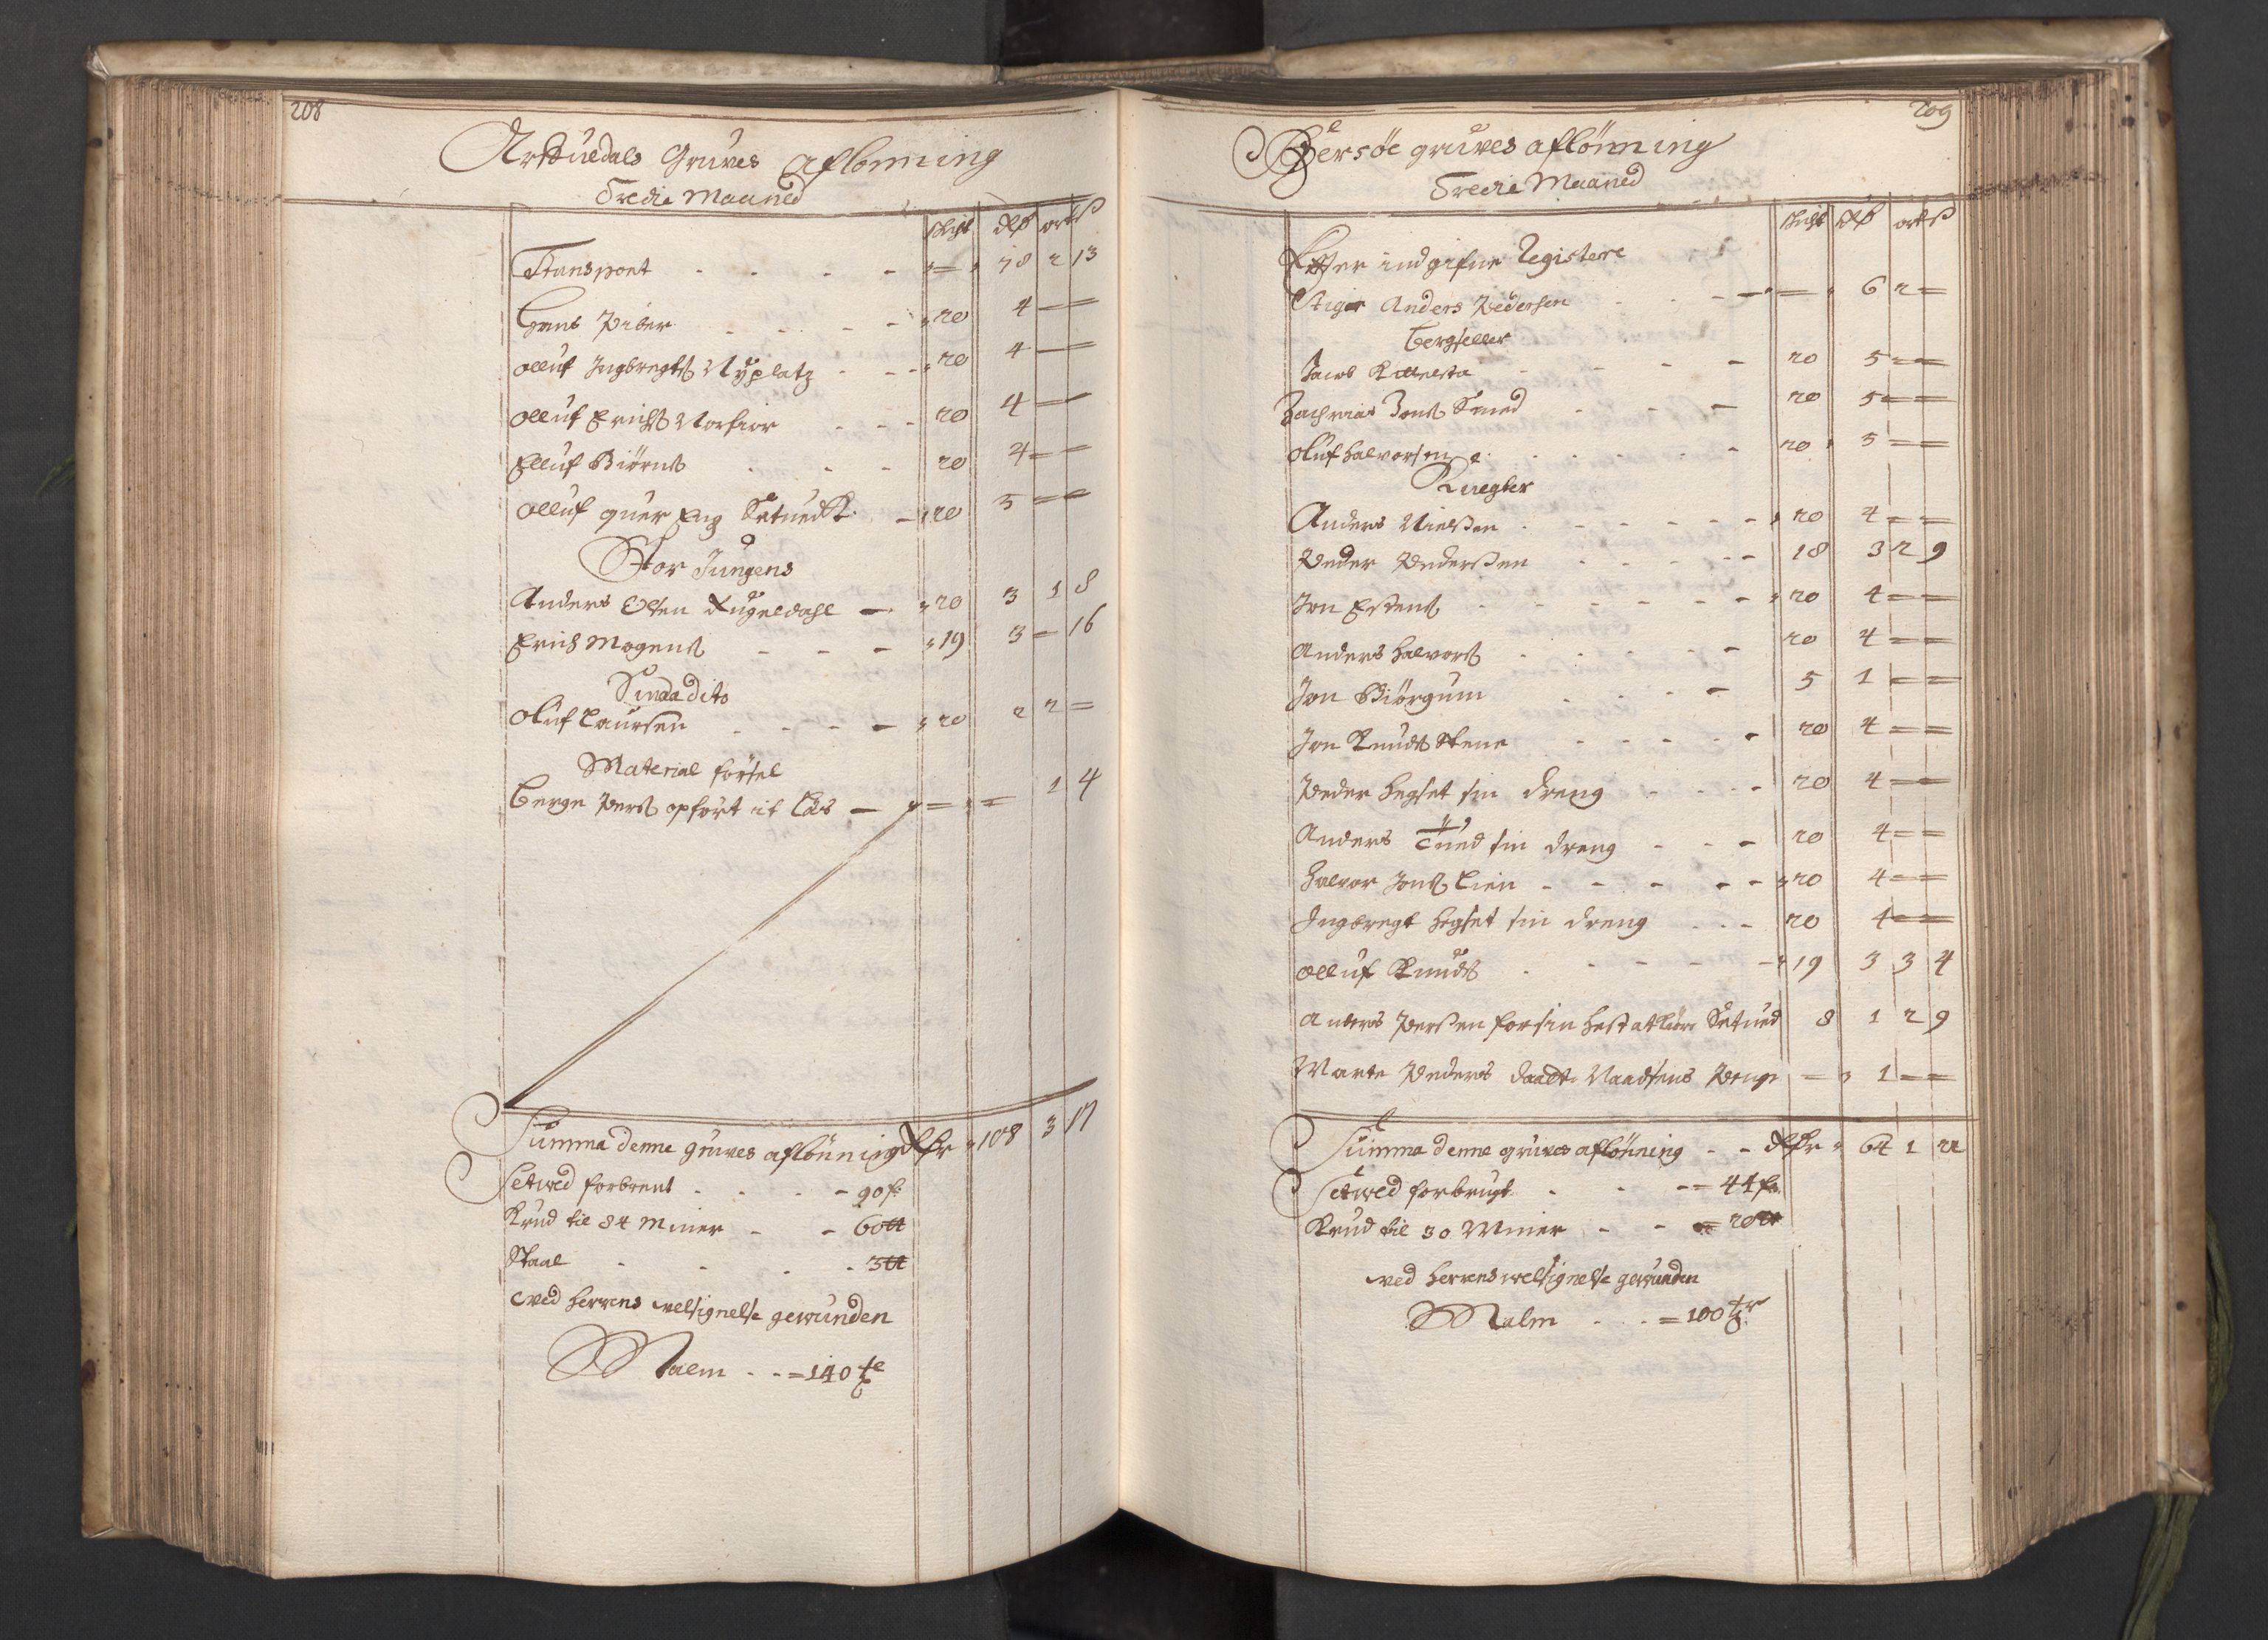 208
Arffuedals Gruves aflönning
Tredie Maaned
Schigt Rdr ort ß
Transport - - - - = 78 2 13
Hans Piber - - - - 20 4 = =
Olluf Ingbregts Nyplatz - - - 20 4 = =
Olluf Erichs Norfior - - - 20 4 = =
Elluf Biörns - - - 20 4 = =
Olluf quer Eng Setued - 20 5 = =
Stor Jungens
Anders Olsen Kugeldahl - 20 3 1 8
Erich Mogens - - - 19 3 = 16
Smaa dito
Oluf Laursen - - - - 20 2 2 =
Material förſel
Berge Pers opfört it Läs - = = 1 4
Summa denne gruves aflönning Rdr 108 3 17
Setwed forbrent - - - 90 f:
Krud til 84 Miner - - 60 tt
Staal - - - - 3 tt
ved herrens velsignelse gewunden
Malm - - = 140 te
209
Gersöe gruves aflönning
Tredie Maaned
Schigt Rdr ort ß
Efter indgifne Registere
Stiger Anders Pedersen - - - = 6 2 =
Bergseller
Jacob - - - - 20 5 = =
Zachrias Jons Smed - - - 20 5 = =
Oluf halvorsen - - - - 20 5 = =
Knegter
Anders Nielsen - - - - - 20 4 = =
Peder Pedersen - - - - 18 3 2 9
Jon Estens - - - - - - 20 4 = =
Anders halvors - - - - - 20 4 = =
Jon Biörgum - - - - 5 1 = =
Jon Knuds Stene - - - - - 20 4 = =
Peder Hegset sin dreng - - - - 20 4 = =
Anders sin dreng - - - 20 4 = =
Halvor Jons Lien - - - - - 20 4 = =
Ingbregt Hegset sin dreng - - - 20 4 = =
Olluf Knuds - - - - - 19 3 3 4
Anders Persen for sin hest at kiöre Setued 8 1 2 9
Marte Peders Naadsens Penge = 1 = =
Summa denne gruves aflönning - - Rdr 64 1 22
Setwed forbrugt - - = 44 f:
Krud til 30 Miner - - = 20 tt
ved herrens velsignelse gewunden
Malm - - = 100 tr